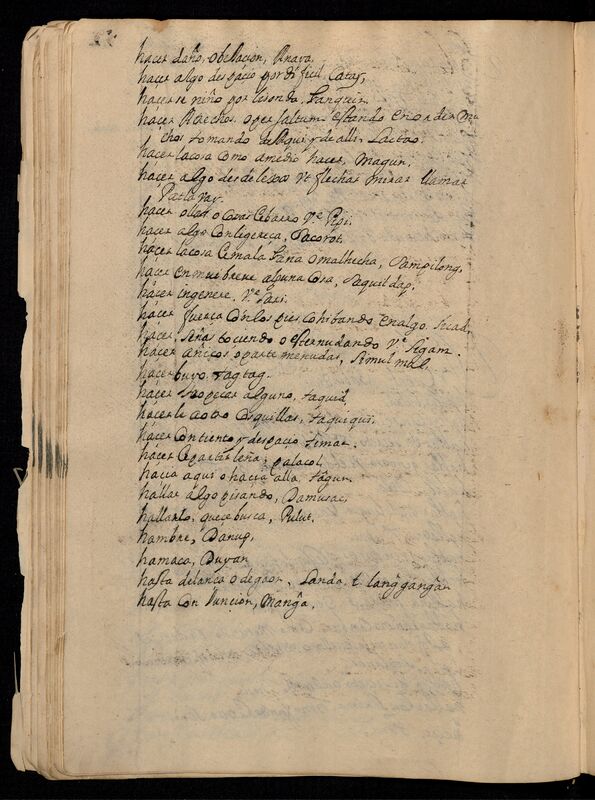 hacer daño, o belacion, Anava.
hacer algo despacio por dificil, Catay,
hacerse niño por lisonda, Sanguir.
hacer Ahechos, o per saltum estando en orden mu
chos tomando de aqui y de alli, Lactao.
hacer la cosa como a medio hacer, Magun.
hacer algo desde lexos Vt flechar mirar llamar
Patavay.
hacer ollas o cosas de barro Vᵉ Pipi.
hacer algo con ligereça, Pacorot.
hacer la cosa de mala gana o mal hecha, Pampilong,
hacer en muebreve alguna cosa, Paquildap,
hacer ingenere, Vᵉ Pari.
hacer fuerça con los pies cohibando en algo. Sicad,
hacer señas tociendo o esternudando Vᵉ Sigam.
hacer añicos o partes menudas, Simulmol.
hacer buyo. Tagtag.
hacer tropecar alguno, taquid,
hacerle a otro cosquillas, taquiqui.
hacer con tiento y despacio timar.
hacer o partir leña, palacol,
hacia aqui o hacia alla, tagun.
hallar algo pisando, Damusac,
hallarlo, que se busca, Pulut.
hambre, Danup,
hamaca, Duyan
hasta delança o de gaor, Landa, t. lang̃gang̃an
hasta Con Iuncion, Mang̃a.